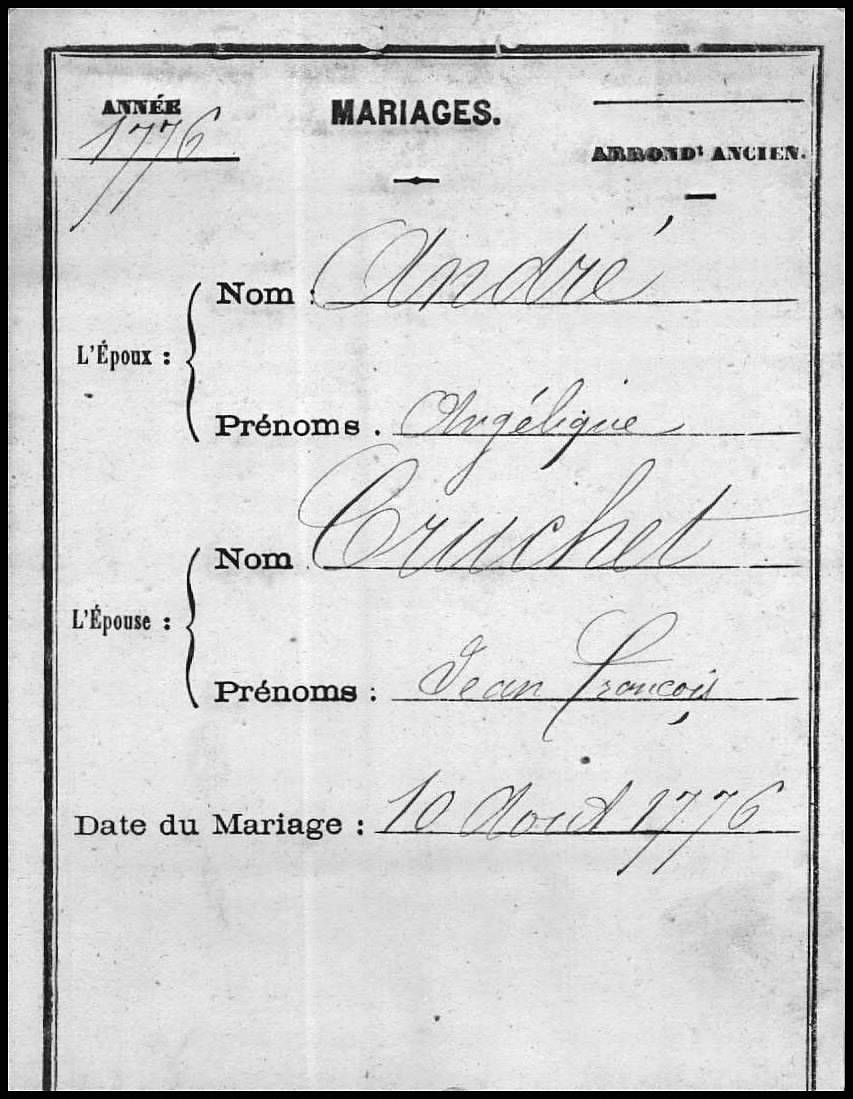 ANNÉE
1776
MARIAGES.
ARRONDt ANCIEN.
L'Époux :
Nom : André
Prénoms . Angélique
L'Épouse :
Nom Cruchet
Prénoms : Jean François
Date du Mariage : 10 Aout 1776